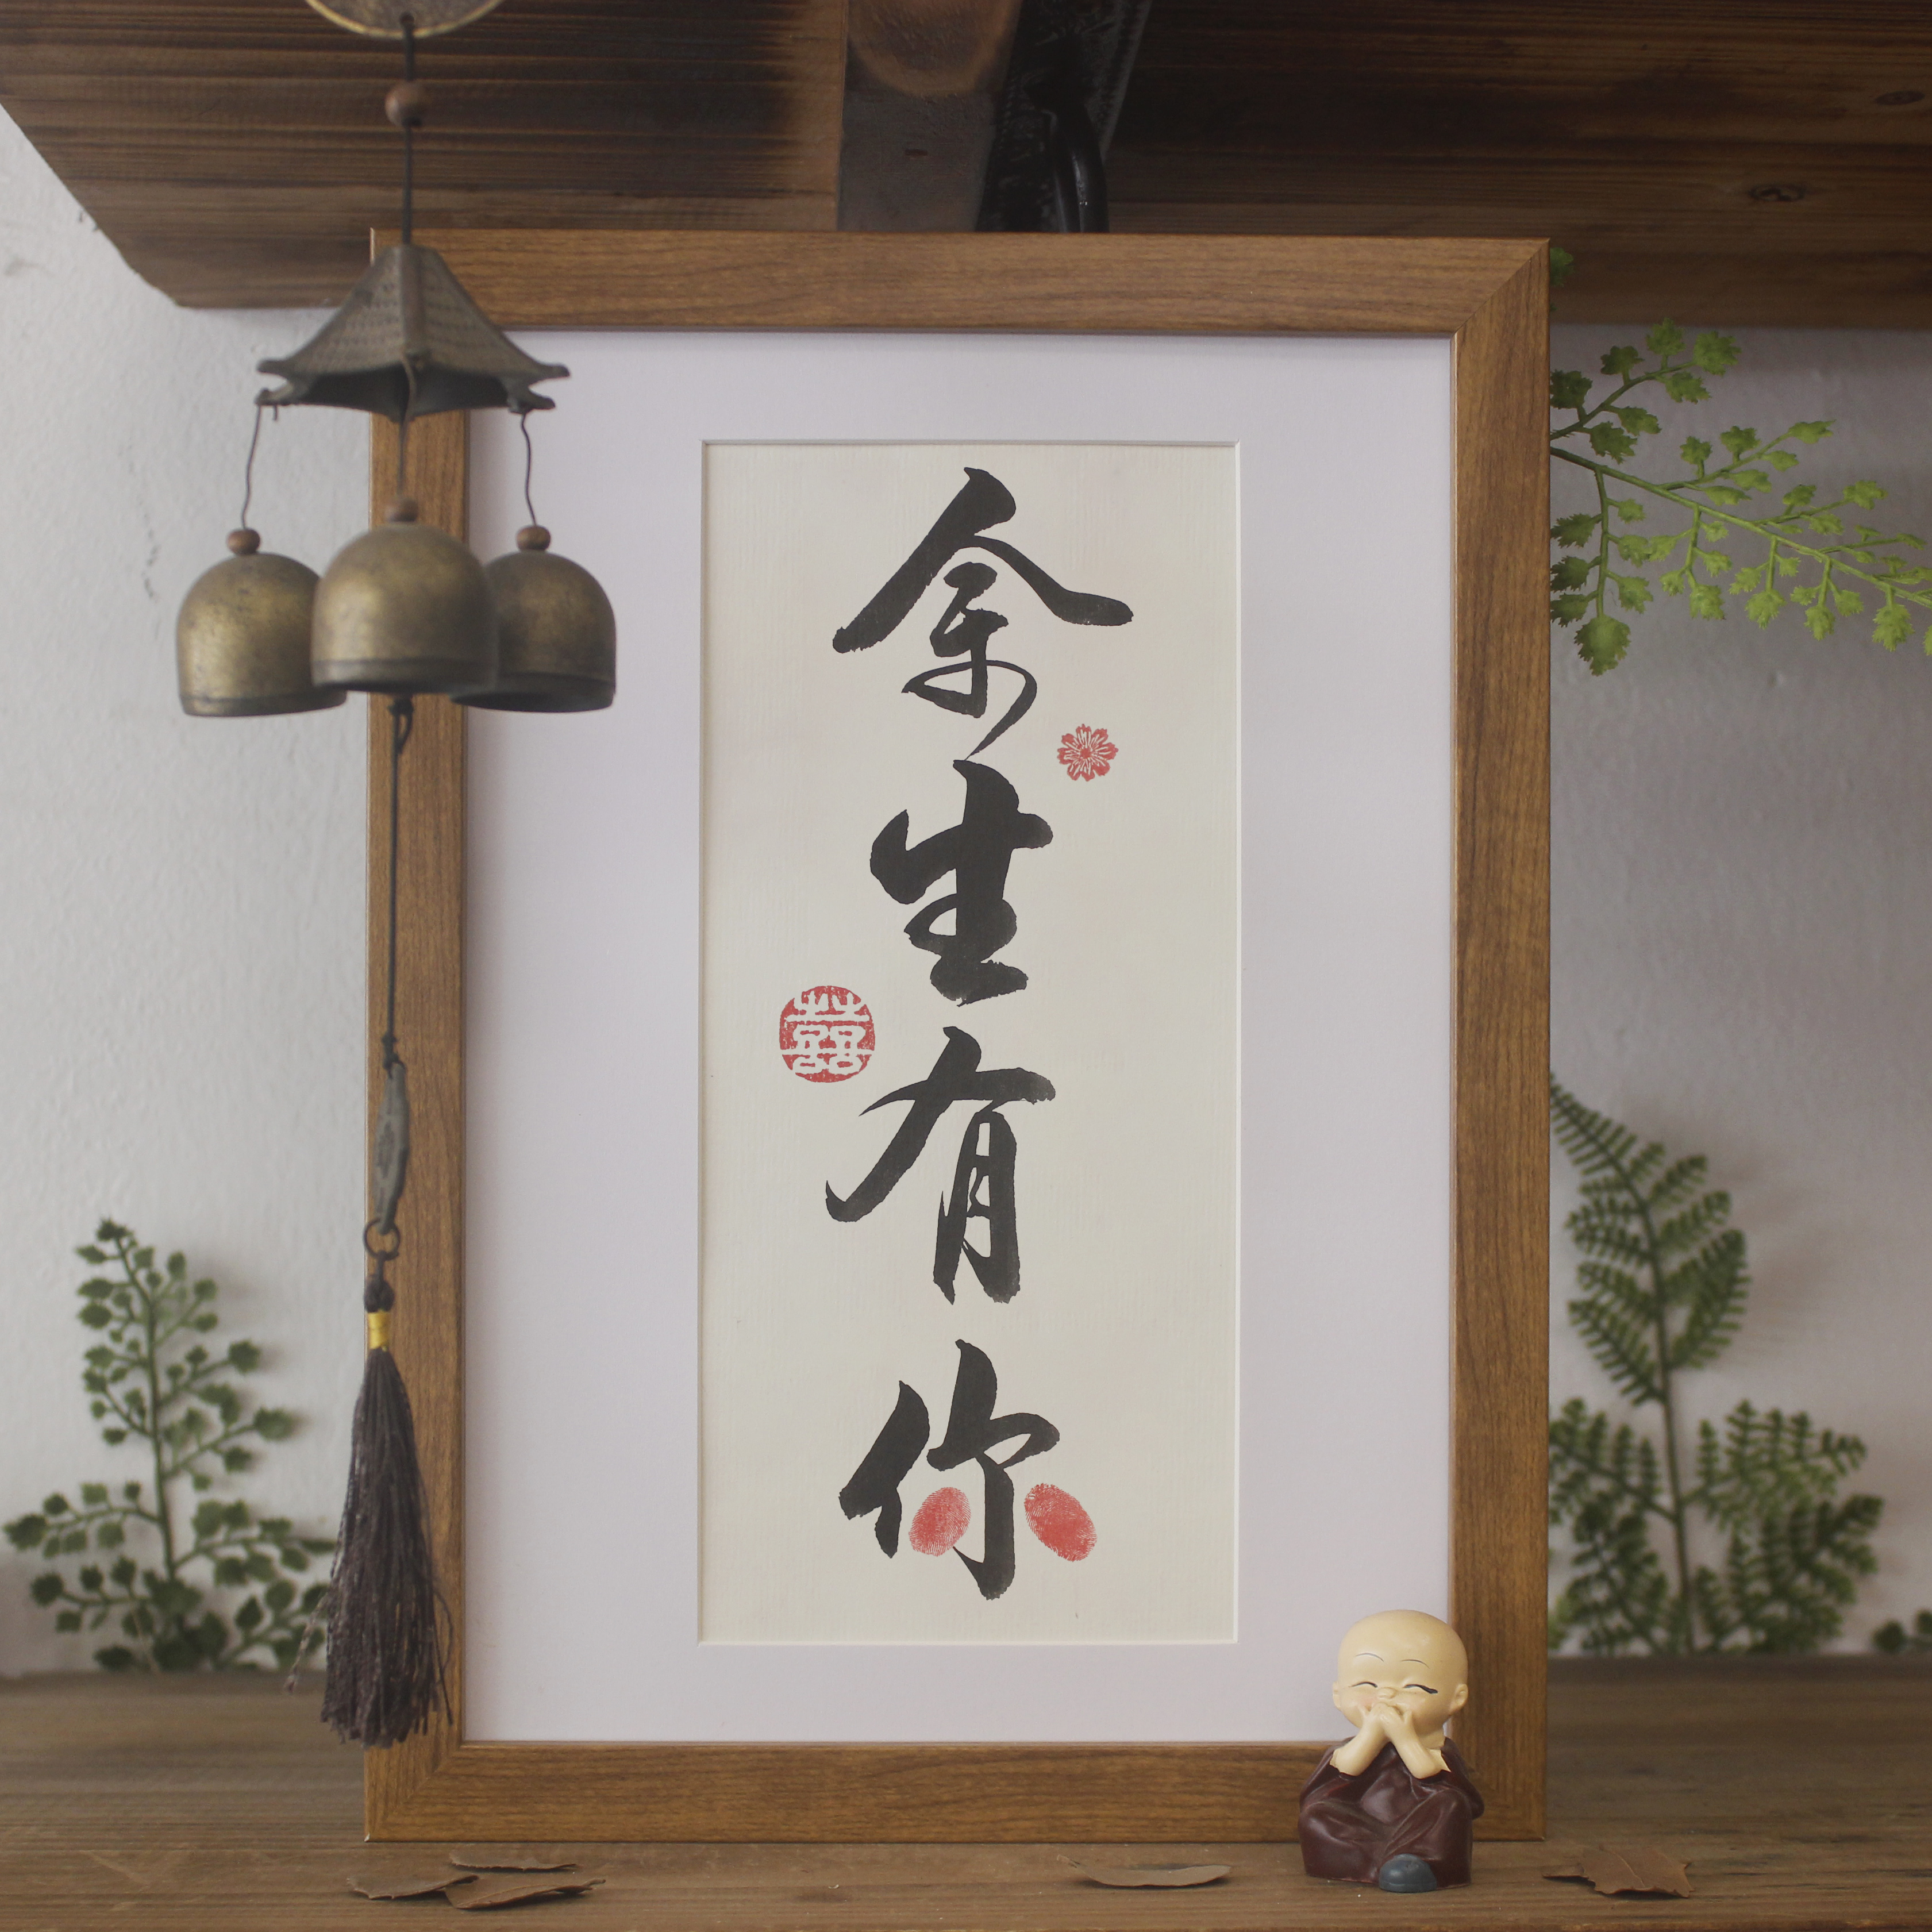 余生有你
囍